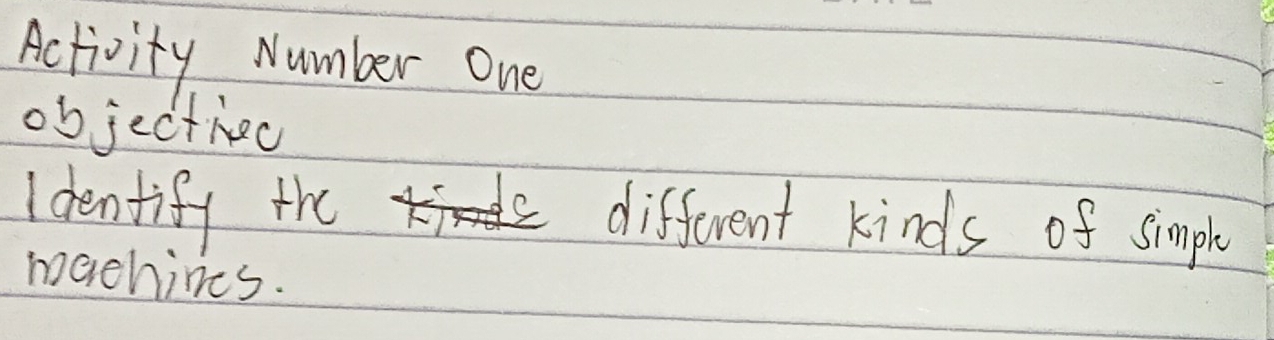 Activity Number One
objective
Identify the kinds different kinds of simple
machines.